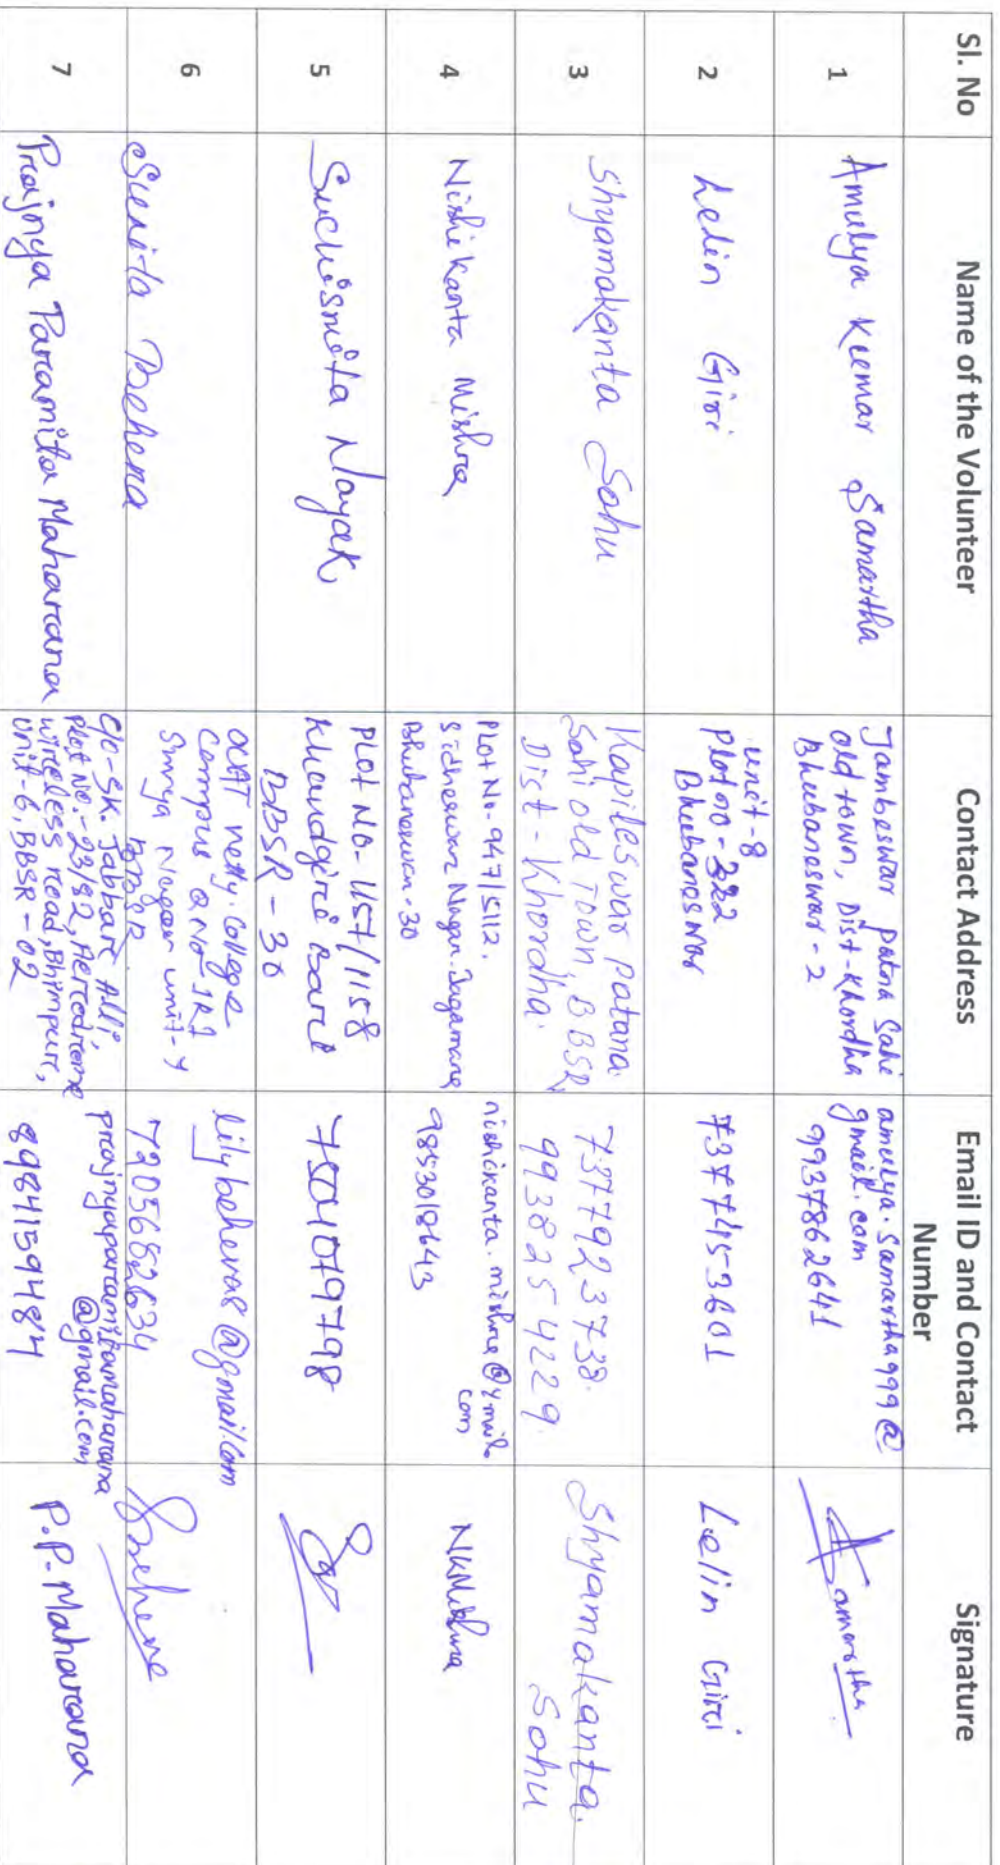 Sl. No
Name of the Volunteer
Contact Address
Email ID and Contact
Number
Signature
1
Amulya Kumar Samartha
Jambeswar patna Sahi
old town, Dist-Khordha
Bhubaneswar-2
amulya.samartha999@
gmail.com
9937862641
Samartha
2
Lelin Giri
unit-8
plot no-222
Bhubaneswar
7377453601
Lelin Giri
3
Shyamakanta Sahu
Kapileswar patana
Sahi old Town, BBSR,
Dist-Khordha
7377923738.
9938254229.
Shyamakanta.
Sahu
4
Nishikanta Mishra
Plot No-947/5112,
Sidheswar Nagar. Jagamara
Bhubaneswar-30
nishikanta.mishra@ymail.
com
9853018643
NKMishra
5
Suchismita Nayak
PLOT NO-1157/1158
Khandgiri Bari
BBSR-30
7504079798
6
Sunita Behera
OUAT
College
Campus QNo-
Surya Nagar unit-4
BBSR
lilybehera8@gmail.com
7205682634
SBehera
7
Prajnya Paramita Maharana
C/o-SK. Jabbar Alli,
Plot No:-23/92, Aerodrome
wireless road, Bhimpur,
Unit-6, BBSR-02
prajnyaparamitamaharana
@gmail.com
8984159484
P.P-Maharana